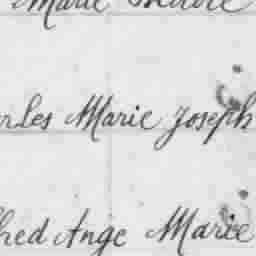 Marie
rles Marie Joseph
hed Ange Marie